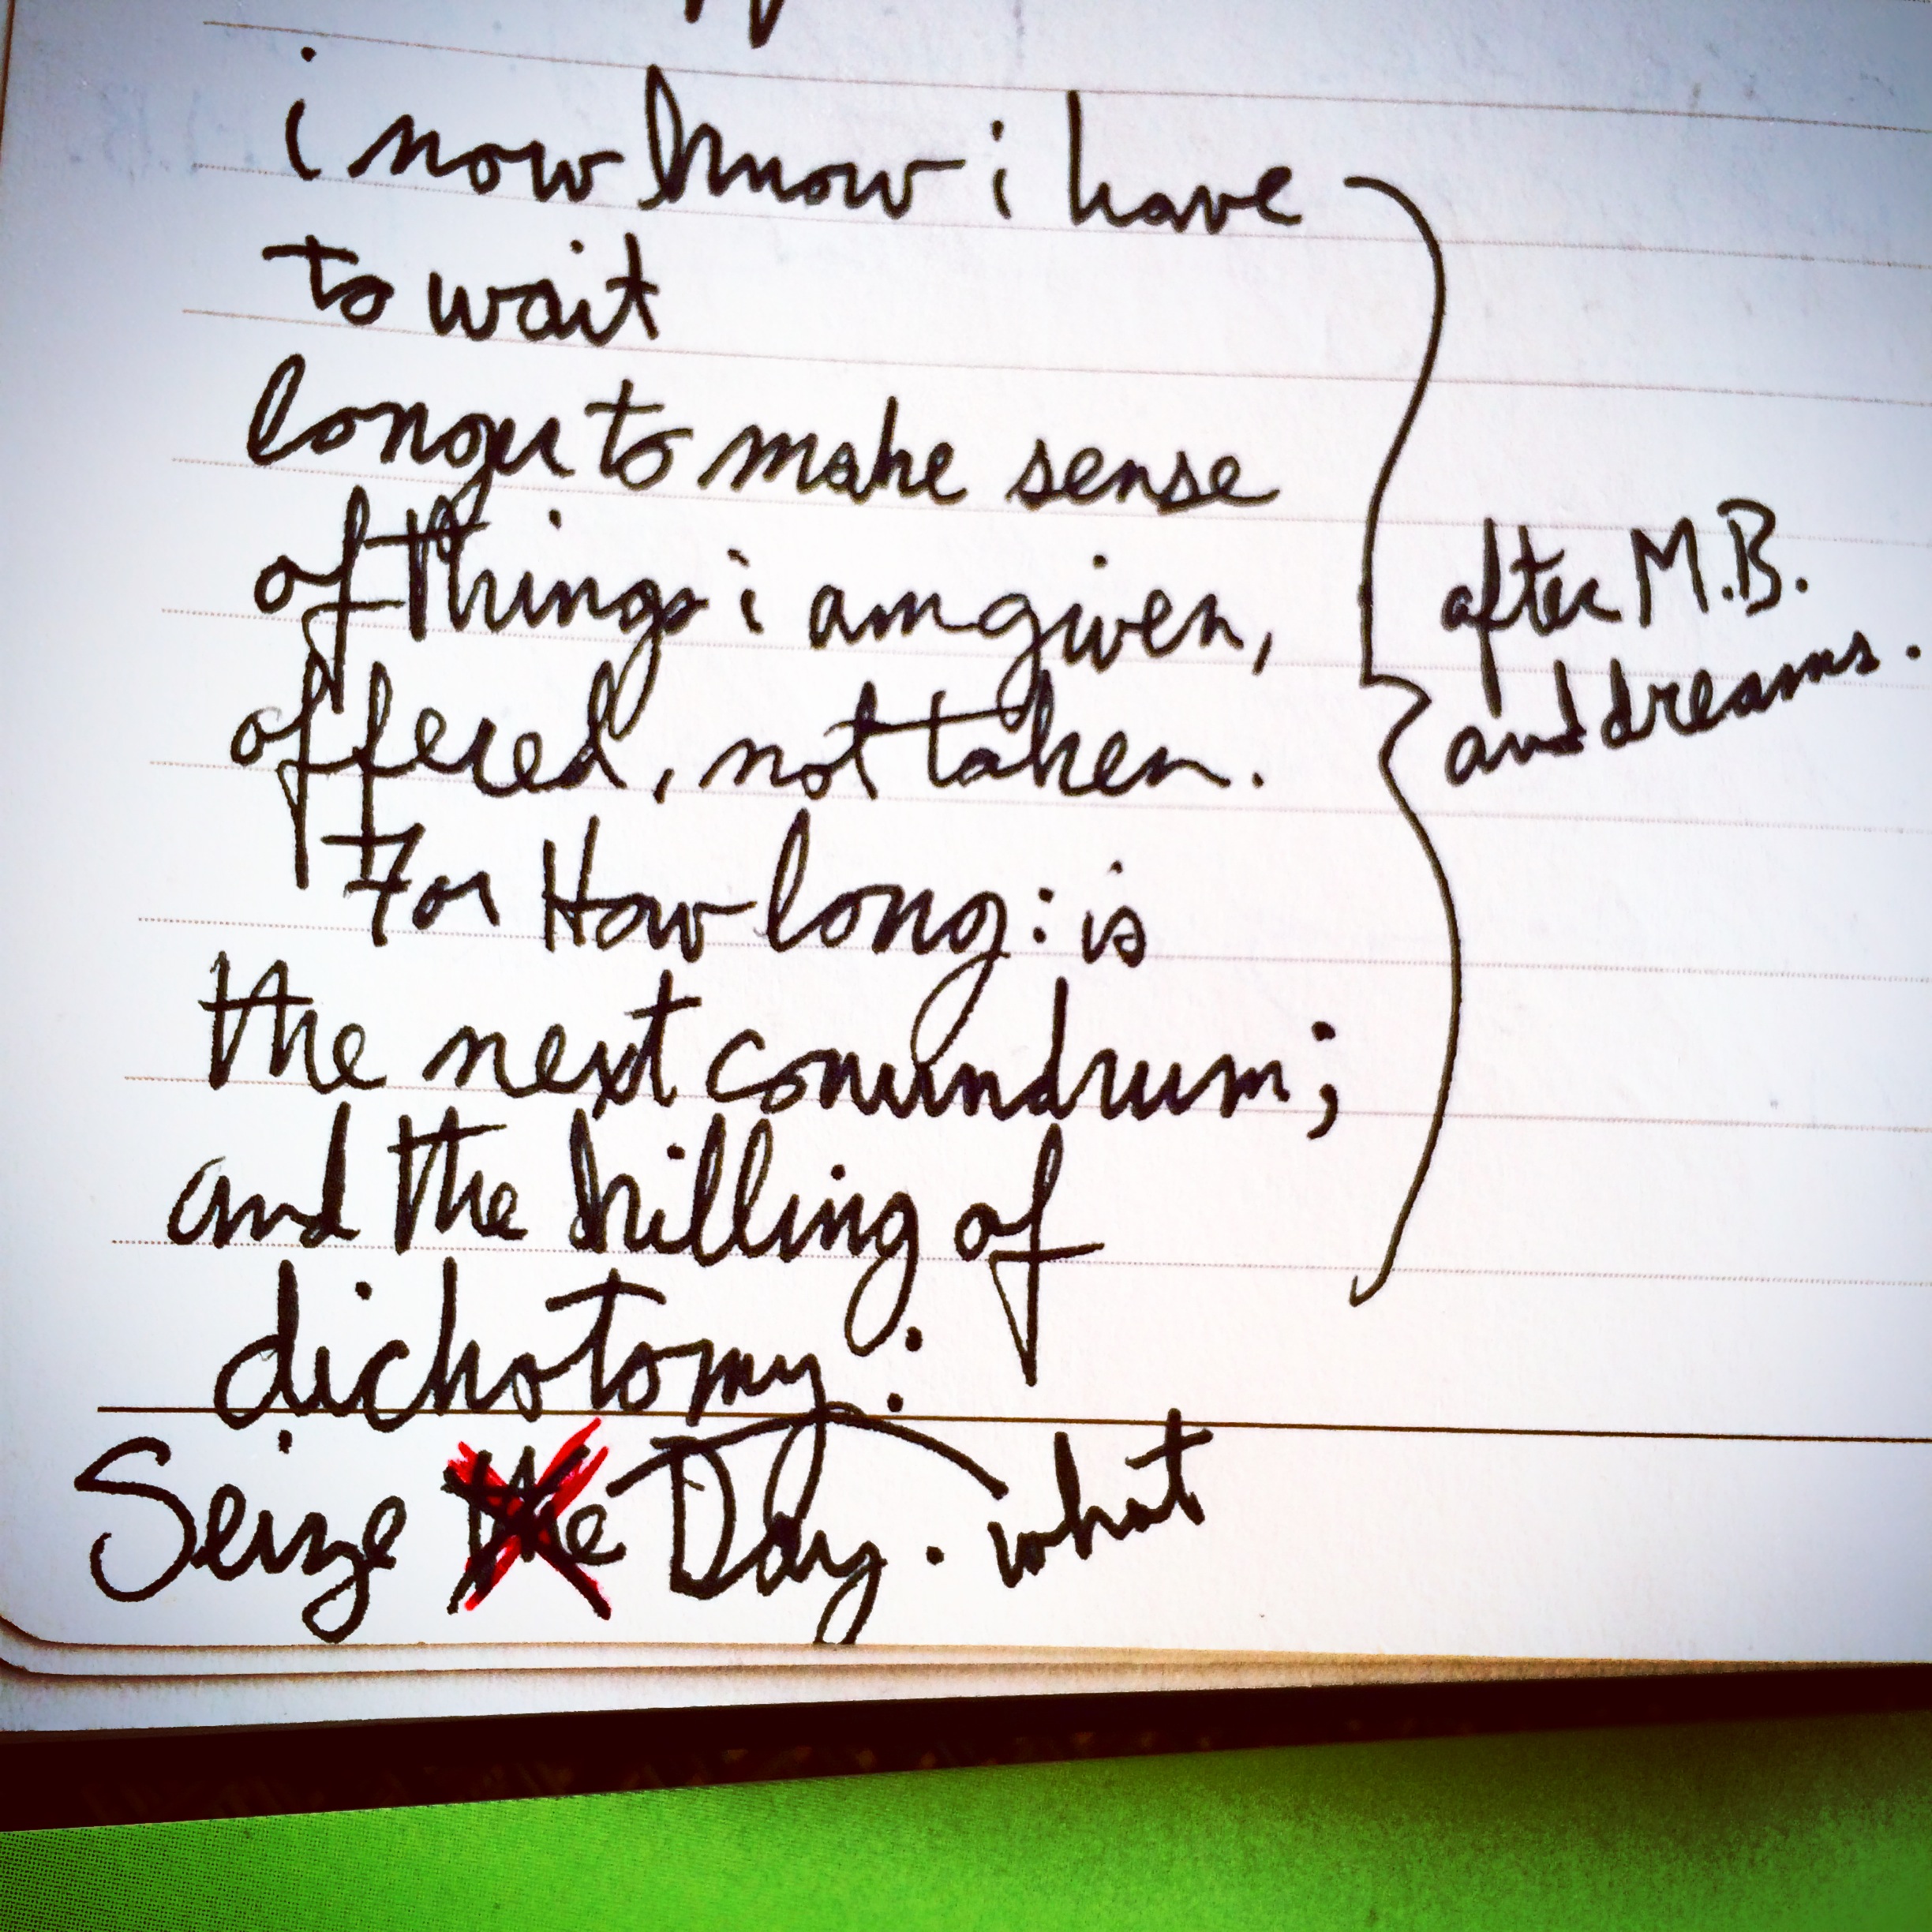 i now know i have
to wait
longer to make sense
of things i am given,
offered, not taken.
For How long: is
the next conundrum;
and the killing of
dichotomy:
Seize the Day. what
after M.B.
and dreams.